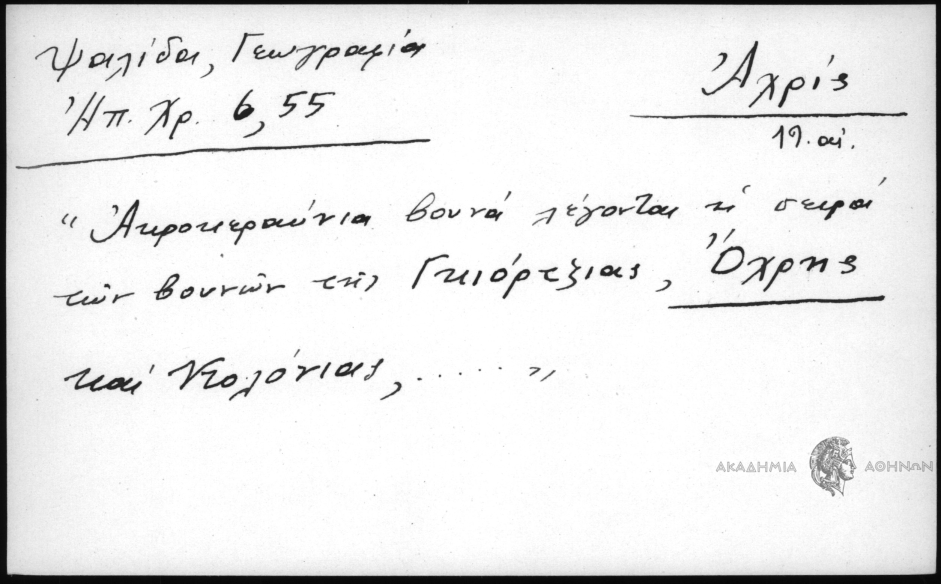 Ψαλίδα, Γεωγραφία
Ἠπ. Χρ. 6, 55
Ἀχρίς
19. αἰ.
"Ἀκροκεραύνια βουνά λέγονται ἡ σειρά
τῶν βουνῶν τῆς Γκιόρτζιας, Ὄχρης
καί Κολόνιας, ..... "
ΑΚΑΔΗΜΙΑ ΑΘΗΝΩΝ